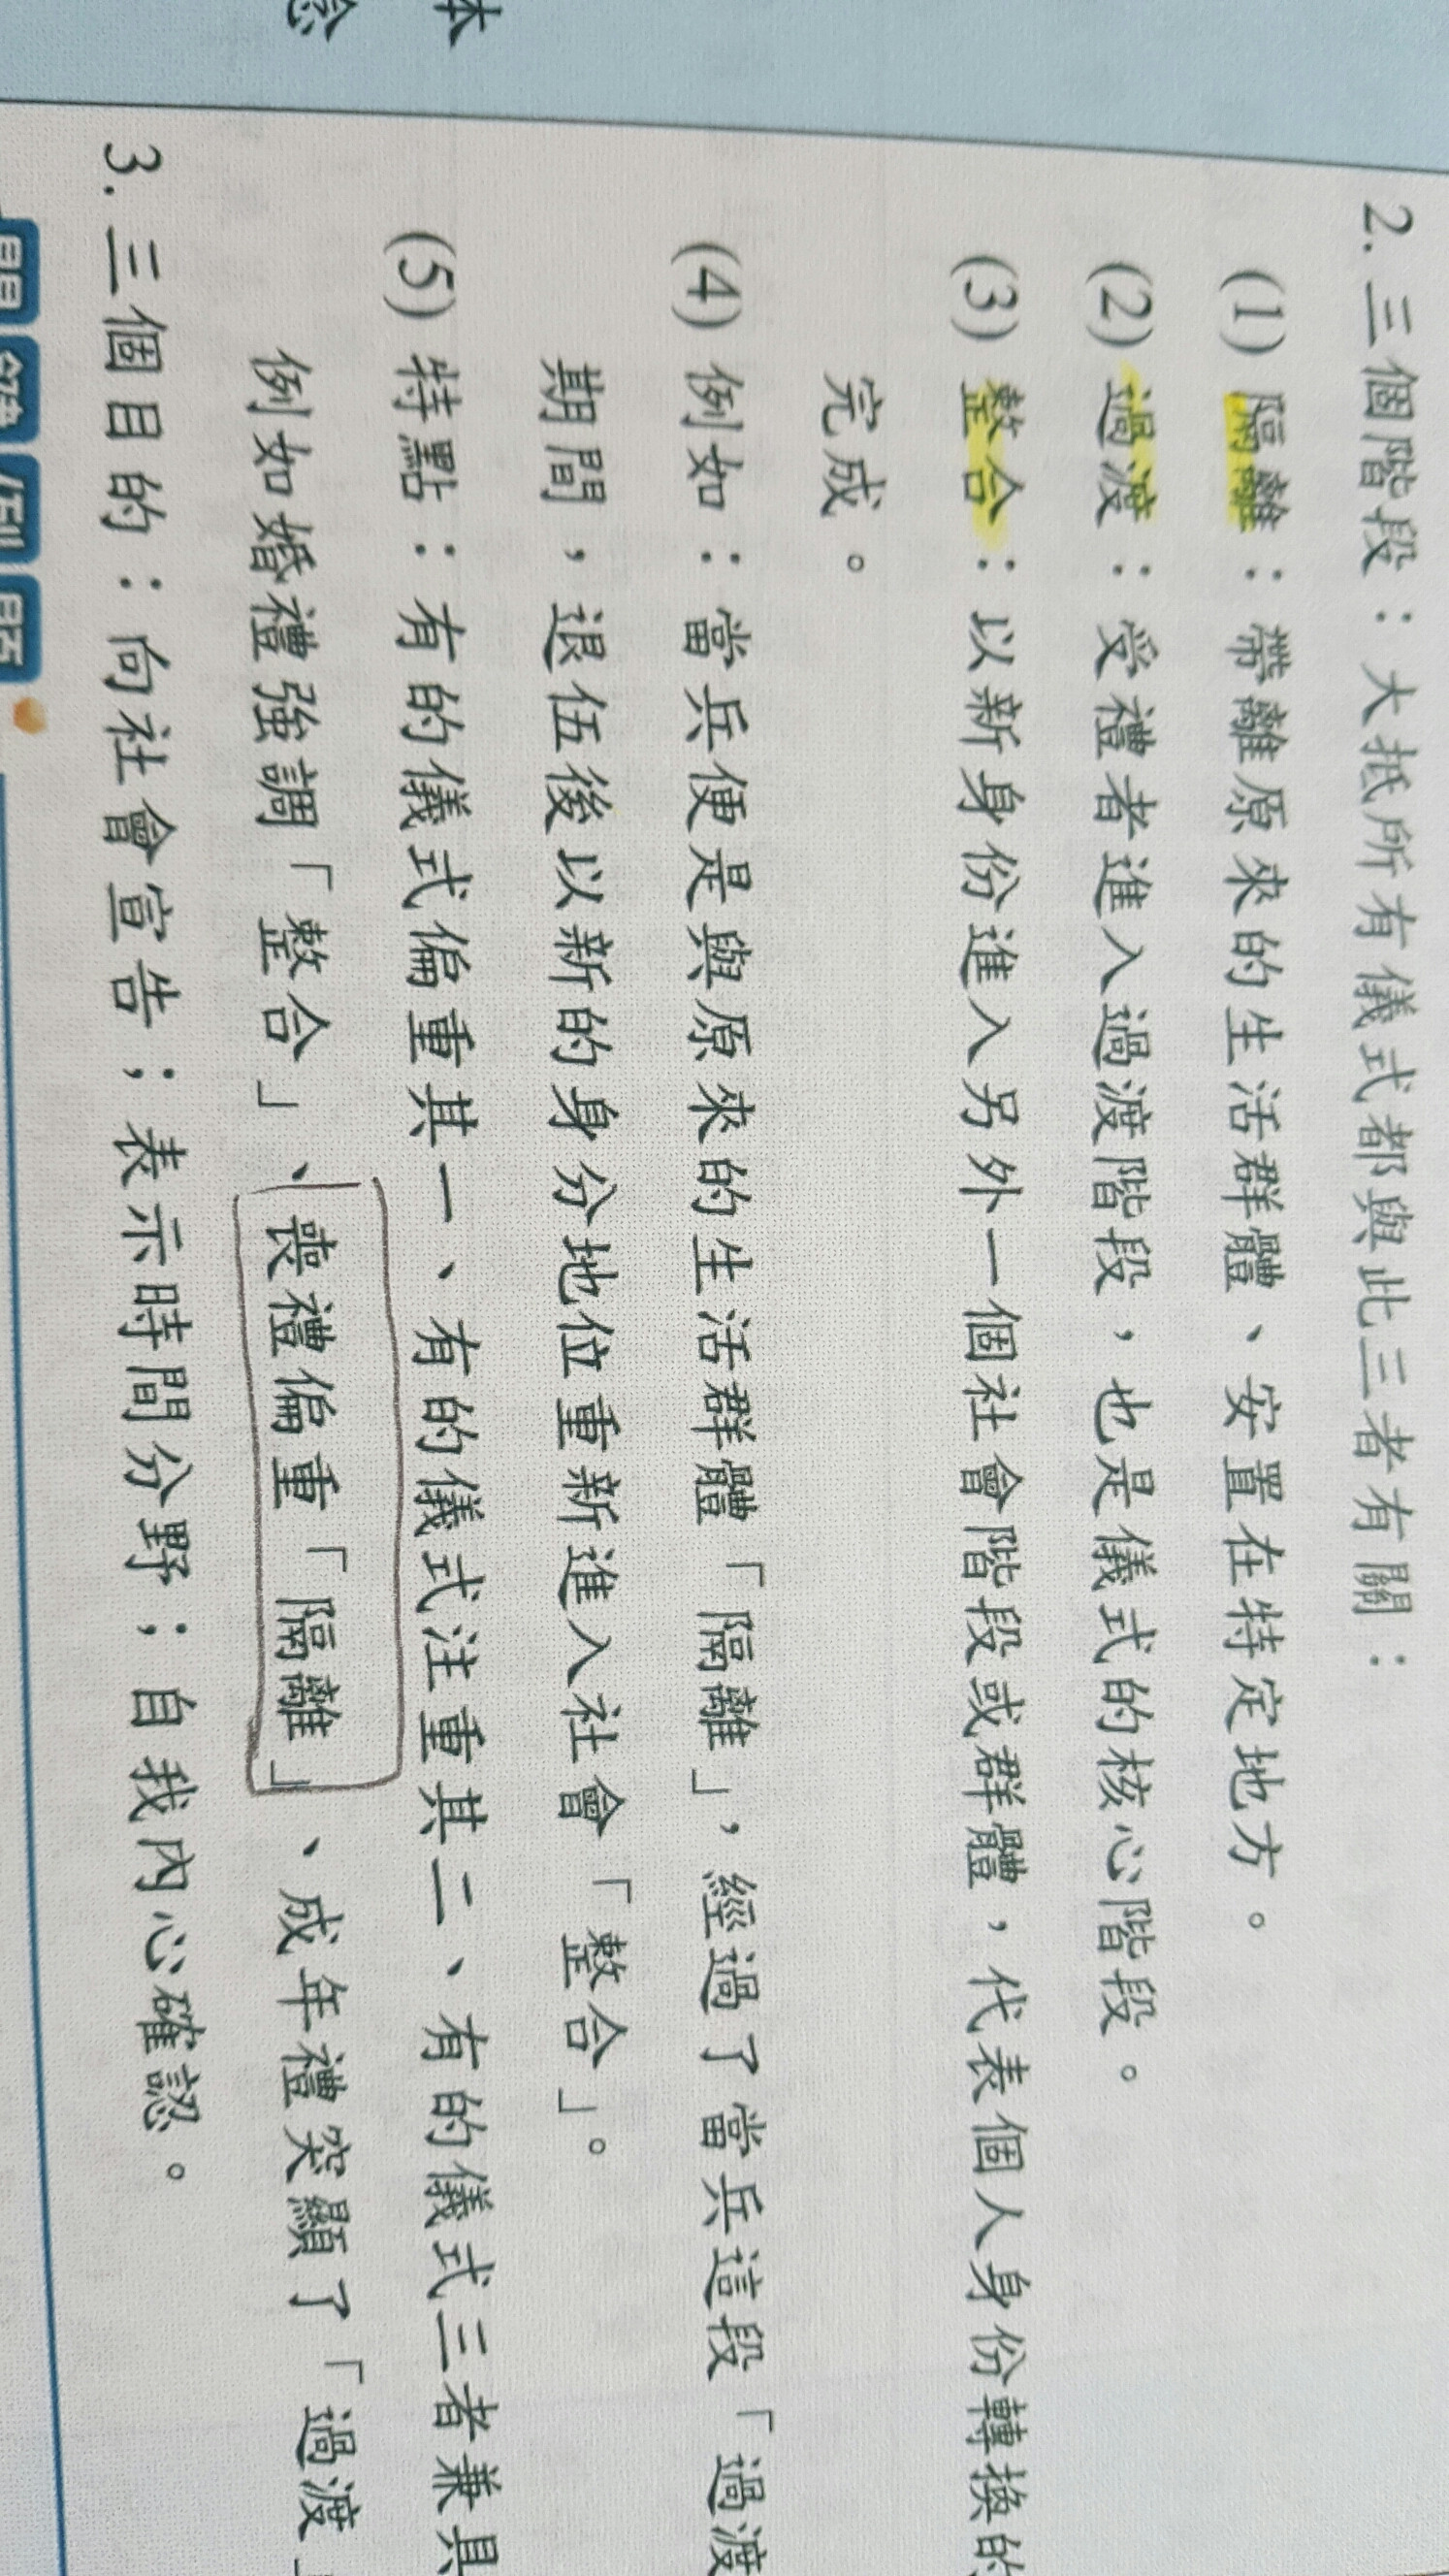 本
念
2. 三個階段：大抵所有儀式都與此三者有關：
(1) 隔離：帶離原來的生活群體、安置在特定地方。
(2) 過渡：受禮者進入過渡階段，也是儀式的核心階段。
(3) 整合：以新身份進入另外一個社會階段或群體，代表個人身份轉換的
完成。
(4) 例如：當兵便是與原來的生活群體「隔離」，經過了當兵這段「過渡
期間，退伍後以新的身分地位重新進入社會「整合」。
(5) 特點：有的儀式偏重其一、有的儀式注重其二、有的儀式三者兼具
例如婚禮強調「整合」、喪禮偏重「隔離」、成年禮突顯了「過渡」
3. 三個目的：向社會宣告；表示時間分野；自我內心確認。